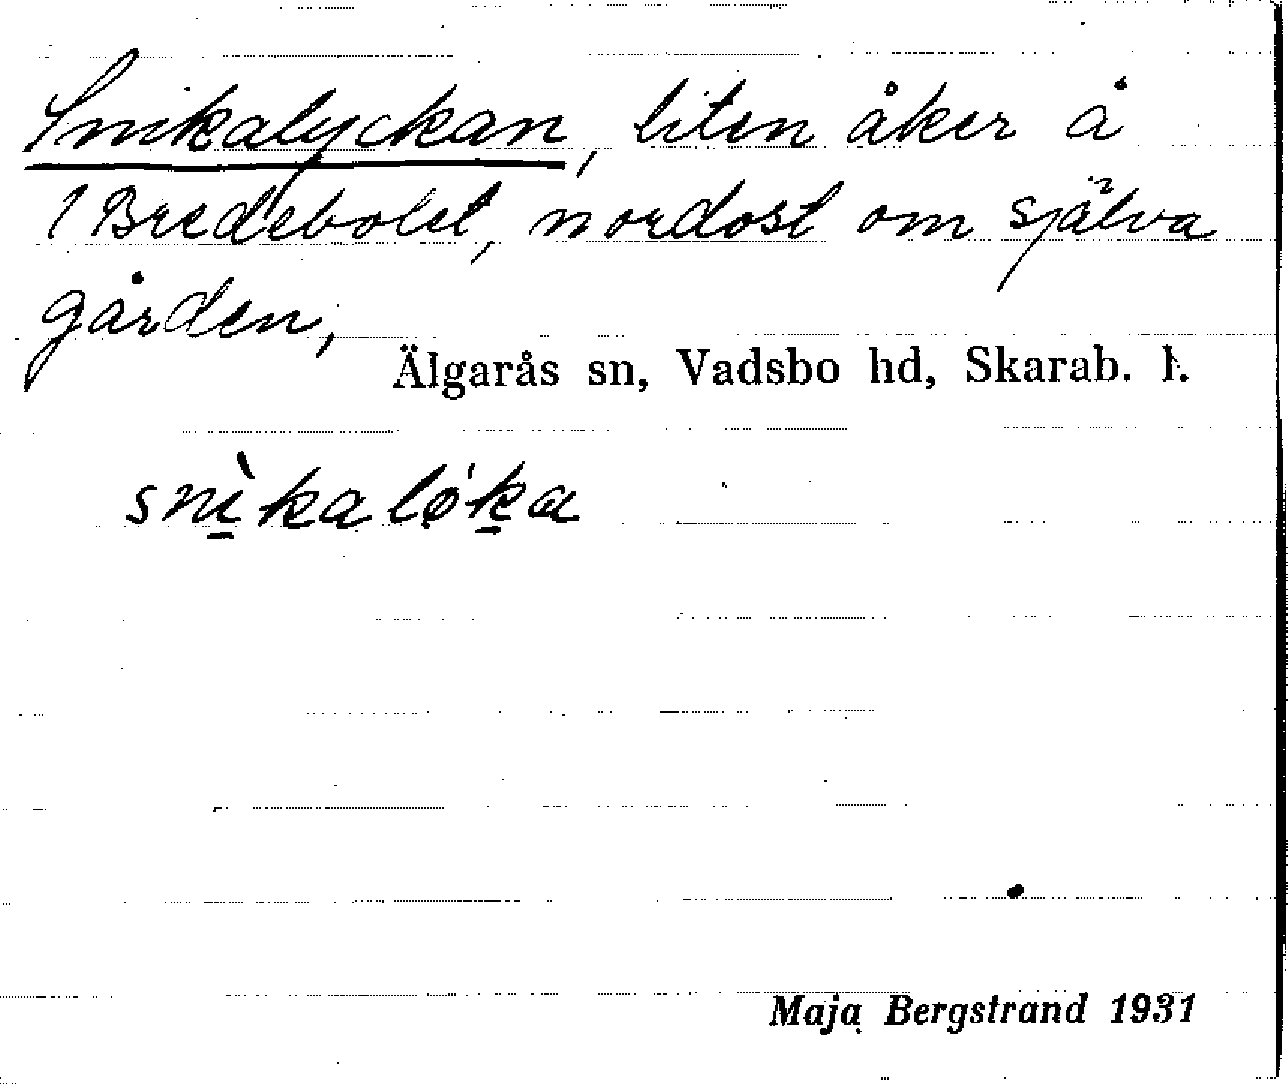 Snikalyckan, liten åker å
1 Bredebolet, nordost om själva
gården,
Älgarås sn, Vadsbo hd, Skarab. l.
snìkaløka
Maja Bergstrand 1931